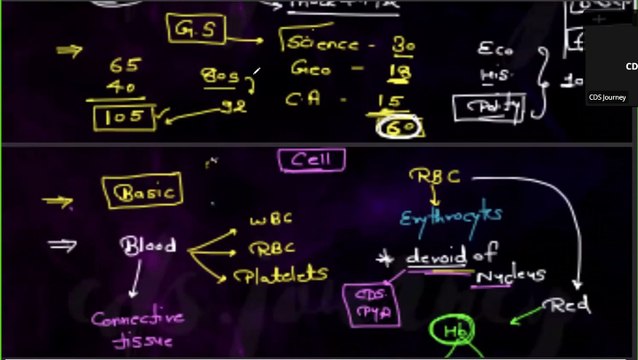 G.S
Science - 30
Geo - 18
C.A - 15
60
65
40
105
80s
92
Eco
His
Polity
10
CD
CDS Journey
Cell
Basic
Blood
WBC
RBC
Platelets
Connective
tissue
RBC
Erythrocytes
* devoid of
Nucleus
CDS
PYQ
Red
Hb